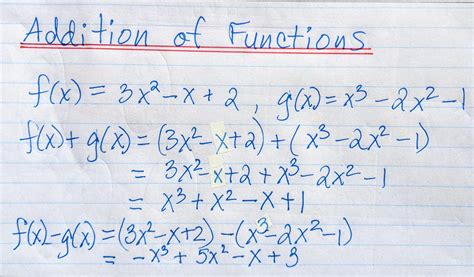 Addition of Functions
f(x) = 3x² - x + 2 , g(x) = x³ - 2x² - 1
f(x) + g(x) = (3x² - x + 2) + (x³ - 2x² - 1)
= 3x² - x + 2 + x³ - 2x² - 1
= x³ + x² - x + 1
f(x) - g(x) = (3x² - x + 2) - (x³ - 2x² - 1)
= -x³ + 5x² - x + 3